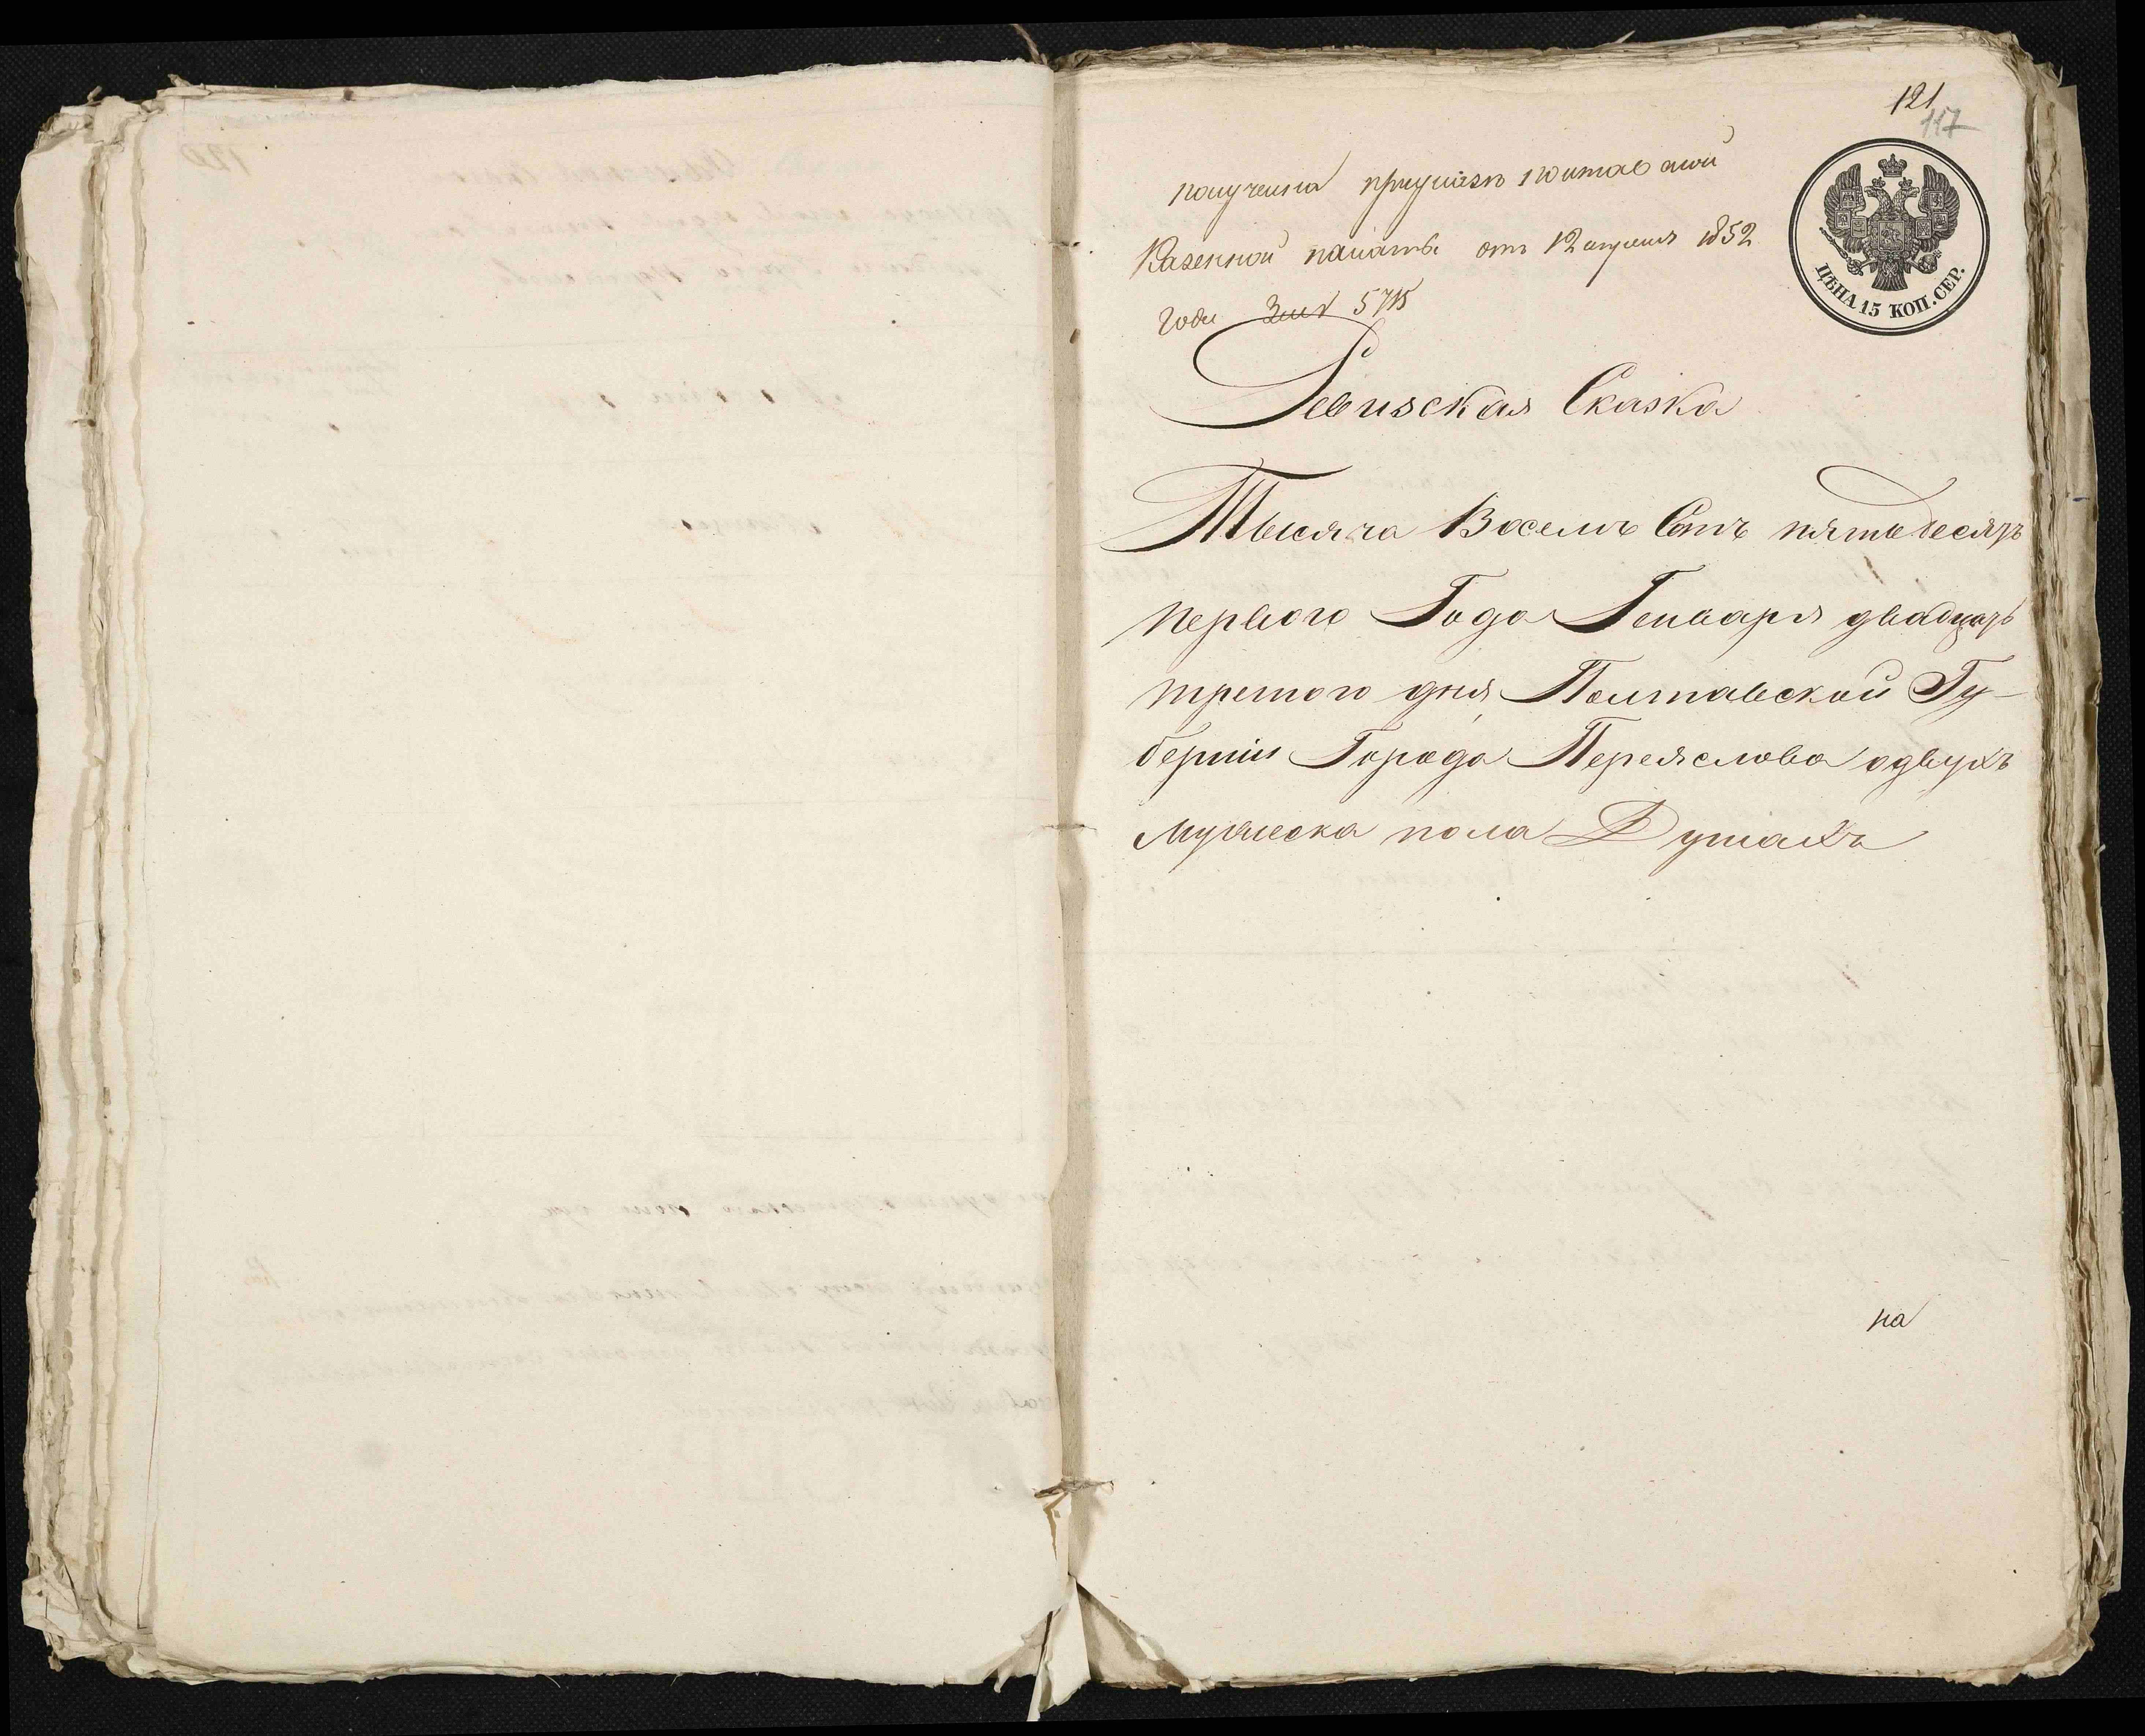 121
117
получена приуказе полтавской
Казенной палаты отъ 12 апреля 1852
года За № 5715
ЦѢНА 15 КОП. СЕР.
Ревизская Сказка
Тысяча Восемь Сотъ пятьдесятъ
первого Года Генваря двадцать
третого дня Полтавской Гу-
берніи Города Переяслова одвухъ
мужеска пола Душахъ
на